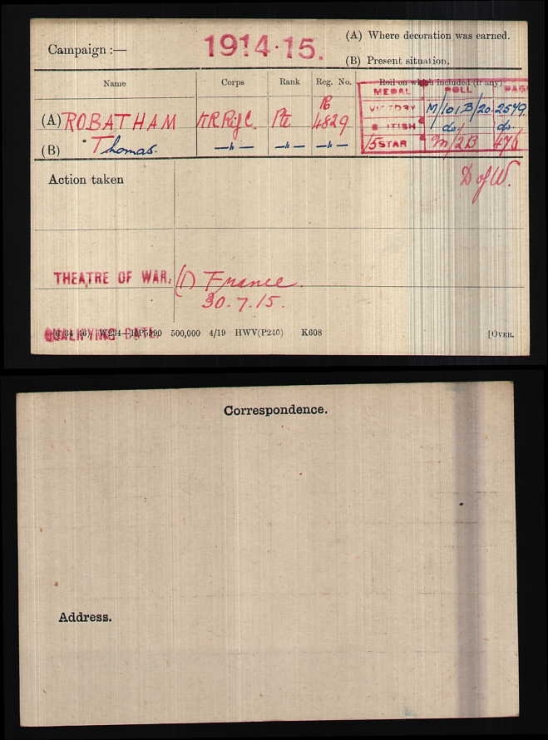 Campaign :— 1914-15.
(A) Where decoration was earned.
(B) Present situation.
Name Corps Rank Reg. No. Roll on which included (if any)
MEDAL ROLL PAGE
(A) ROBATHAM K R Rif C. Pte R 4829
VICTORY M/101B/20 2579
BRITISH do. do.
(B) Thomas. —"— —"— —"—
15 STAR M/2B 476
Action taken
D of W.
THEATRE OF WAR. (1) France.
30.7.15.
QUALIFYING DATE.
500,000 4/19 HWV(P240) K608 [OVER.
Correspondence.
Address.